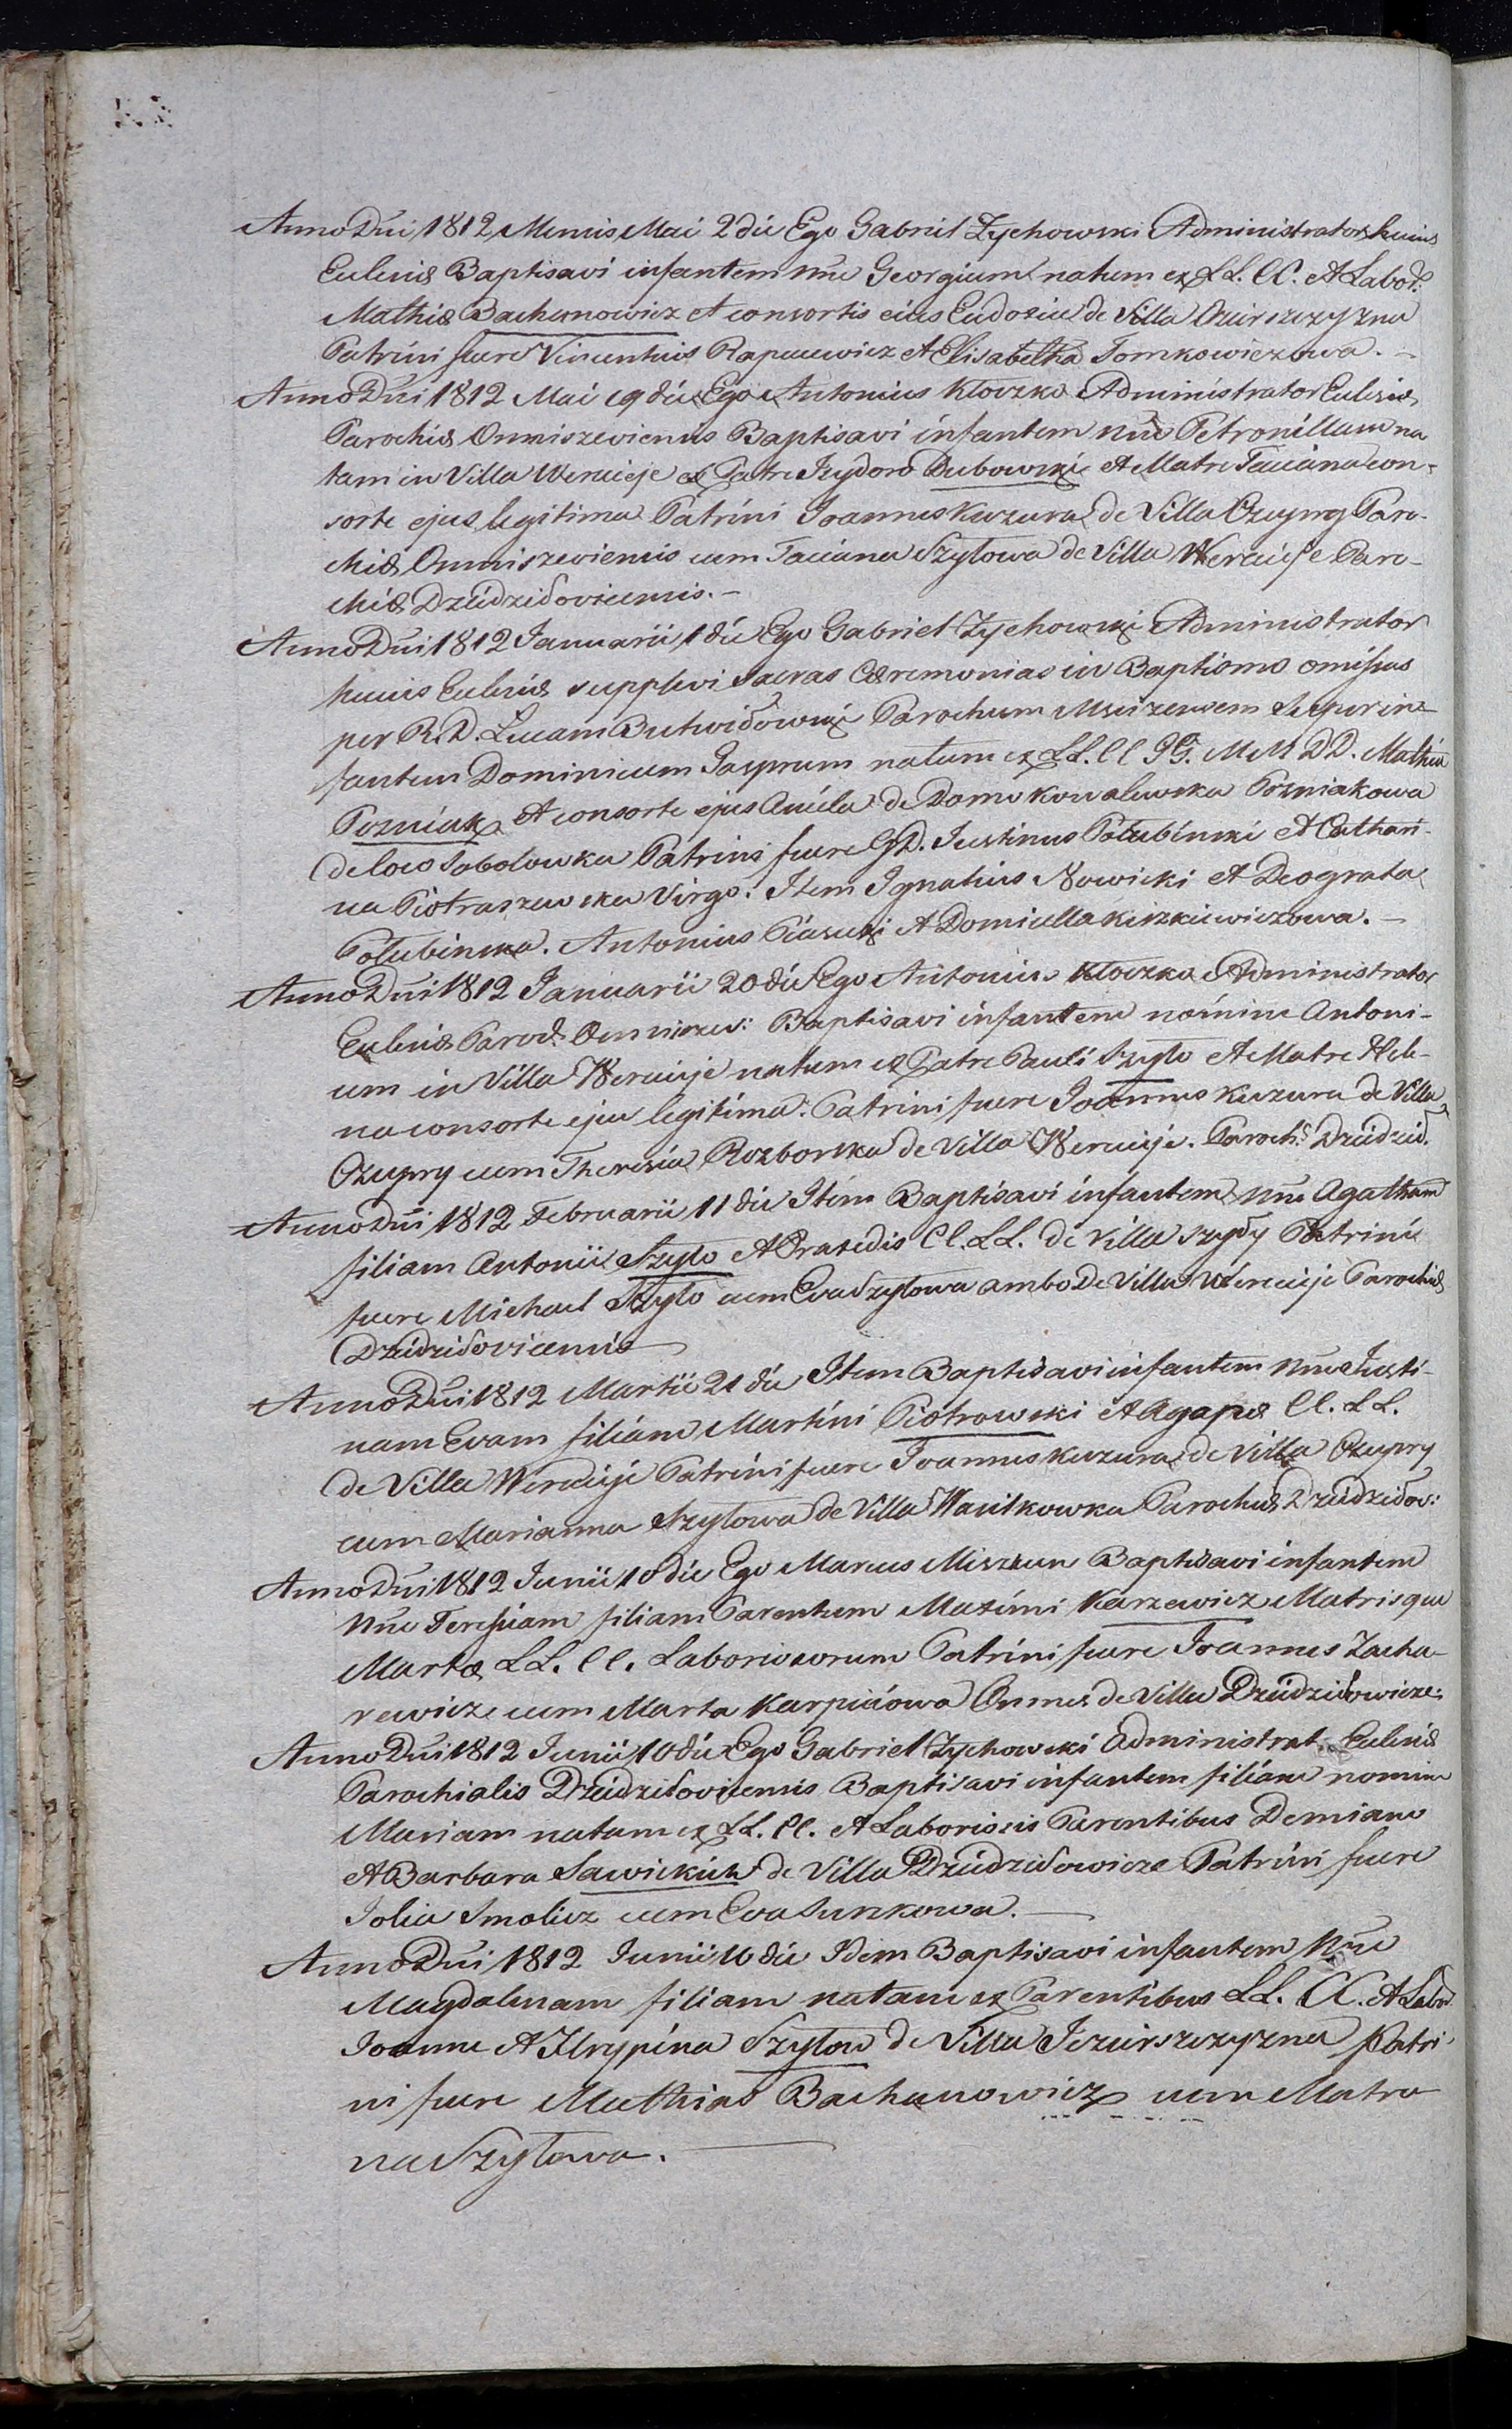 Anno Dni 1812 Mensis Mai 2 die Ego Gabriel Zychowski Administrator huius
Ecclesiæ Baptisavi infantem nne Georgium natum ex LL. CC. et Labor:
Mathiæ Bachanowicz et consortis eius Eudosiæ de Villa
Patrini fuere Vincentius Rapacewicz et Elisabetha Tomkowiczowa. –
Anno Dni 1812 Mai 19 die Ego Antonius Kłoczko Administrator Ecclesiæ
Parochiæ Omniszeviensis Baptisavi infantem nne Petronillam na
tam in Villa Weraicje ex Patre Izydoro Dubowski et Matre Taciana con-
sorte ejus legitima Patrini Joannes Kuzura de Villa Czupry Paro-
chiæ Omniszeviensis cum Taciana Szyłowa de Villa Weraicje Paro-
chiæ Dziedziłoviecensis. –
Anno Dni 1812 Januarii 1 die Ego Gabriel Zychowski Administrator
huius Ecclesiæ supplevi Sacras Cæremonias in Baptismo omissas
per R. D. Lucam Butwiłowski Parochum super in-
fantem Dominicum Jasprum natum ex LL. CC GG. MM DD. Mathia
Pozniak et consorte ejus Aniela de Domo Kowalewska Pozniakowa
de loco Sobolowka Patrini fuere GD. Justinus Połubinski et Cathari-
na Piotraszewska Virgo. Item Ignatius Nowicki et Deograta
Połubinska. Antonius Piasecki et Domicella Kiszkiewiczowa. –
Anno Dni 1812 Januarii 20 die Ego Antonius Kłoczko Administrator
Ecclesiæ Paroch. Omniszev: Baptisavi infantem nomine Antoni-
um in Villa Weraicje natum ex Patre Pauli Szyło et Matre Hele-
na consorte ejus legitima. Patrini fuere Joannes Kuzura de Villa
Czupry cum Theresia Rozborska de Villa Weraicje. Paroch: Dziedził.
Anno Dni 1812 Februarii 11 die Item Baptisavi infantem nne Agatham
filiam Antonii Szyło et Praxedis CC. LL. de Villa Szyły Patrini
fuere Michael Szyło cum Eva Szyłowa ambo de Villa Weraicje Parochiæ
Dziedziłoviecensis
Anno Dni 1812 Martii 21 die Item Baptisavi infantem nne Justi-
nam Evam filiam Martini Piotrowski et Agapæ CC. LL.
de Villa Weraicje Patrini fuere Joannes Kuzura de Villa Czupry
cum Marianna Szyłowa de Villa Wasilkowka Parochiæ Dziedziłov:
Anno Dni 1812 Junii 10 die Ego Marcus Miszkun Baptisavi infantem
nne Teressiam filiam Parentum Maximi Karzewicz Matrisque
Martæ LL. CC. Laboriosorum Patrini fuere Joannes Zacha-
rewicz cum Marta Karpiciowa Omnes de Villa Dziedziłowicze:
Anno Dni 1812 Junii 10 die Ego Gabriel Zychowski Administrat. Ecclesiæ
Parochialis Dziedziłoviecensis Baptisavi infantem filiam nomine
Mariam natam ex LL. CC. et Laboriosis Parentibus Demiano
et Barbara Sawickich de Villa Dziedziłowicze Patrini fuere
Jolia Smolicz cum Eva
Anno Dni 1812 Junii 10 die Idem Baptisavi infantem nne
Magdalenam filiam natam ex Parentibus LL. CC. et Labor.
Joanne et Hrypina Szyłow de Villa Patri
ni fuere Mathias Bachanowicz cum Matro
na Szyłowa.